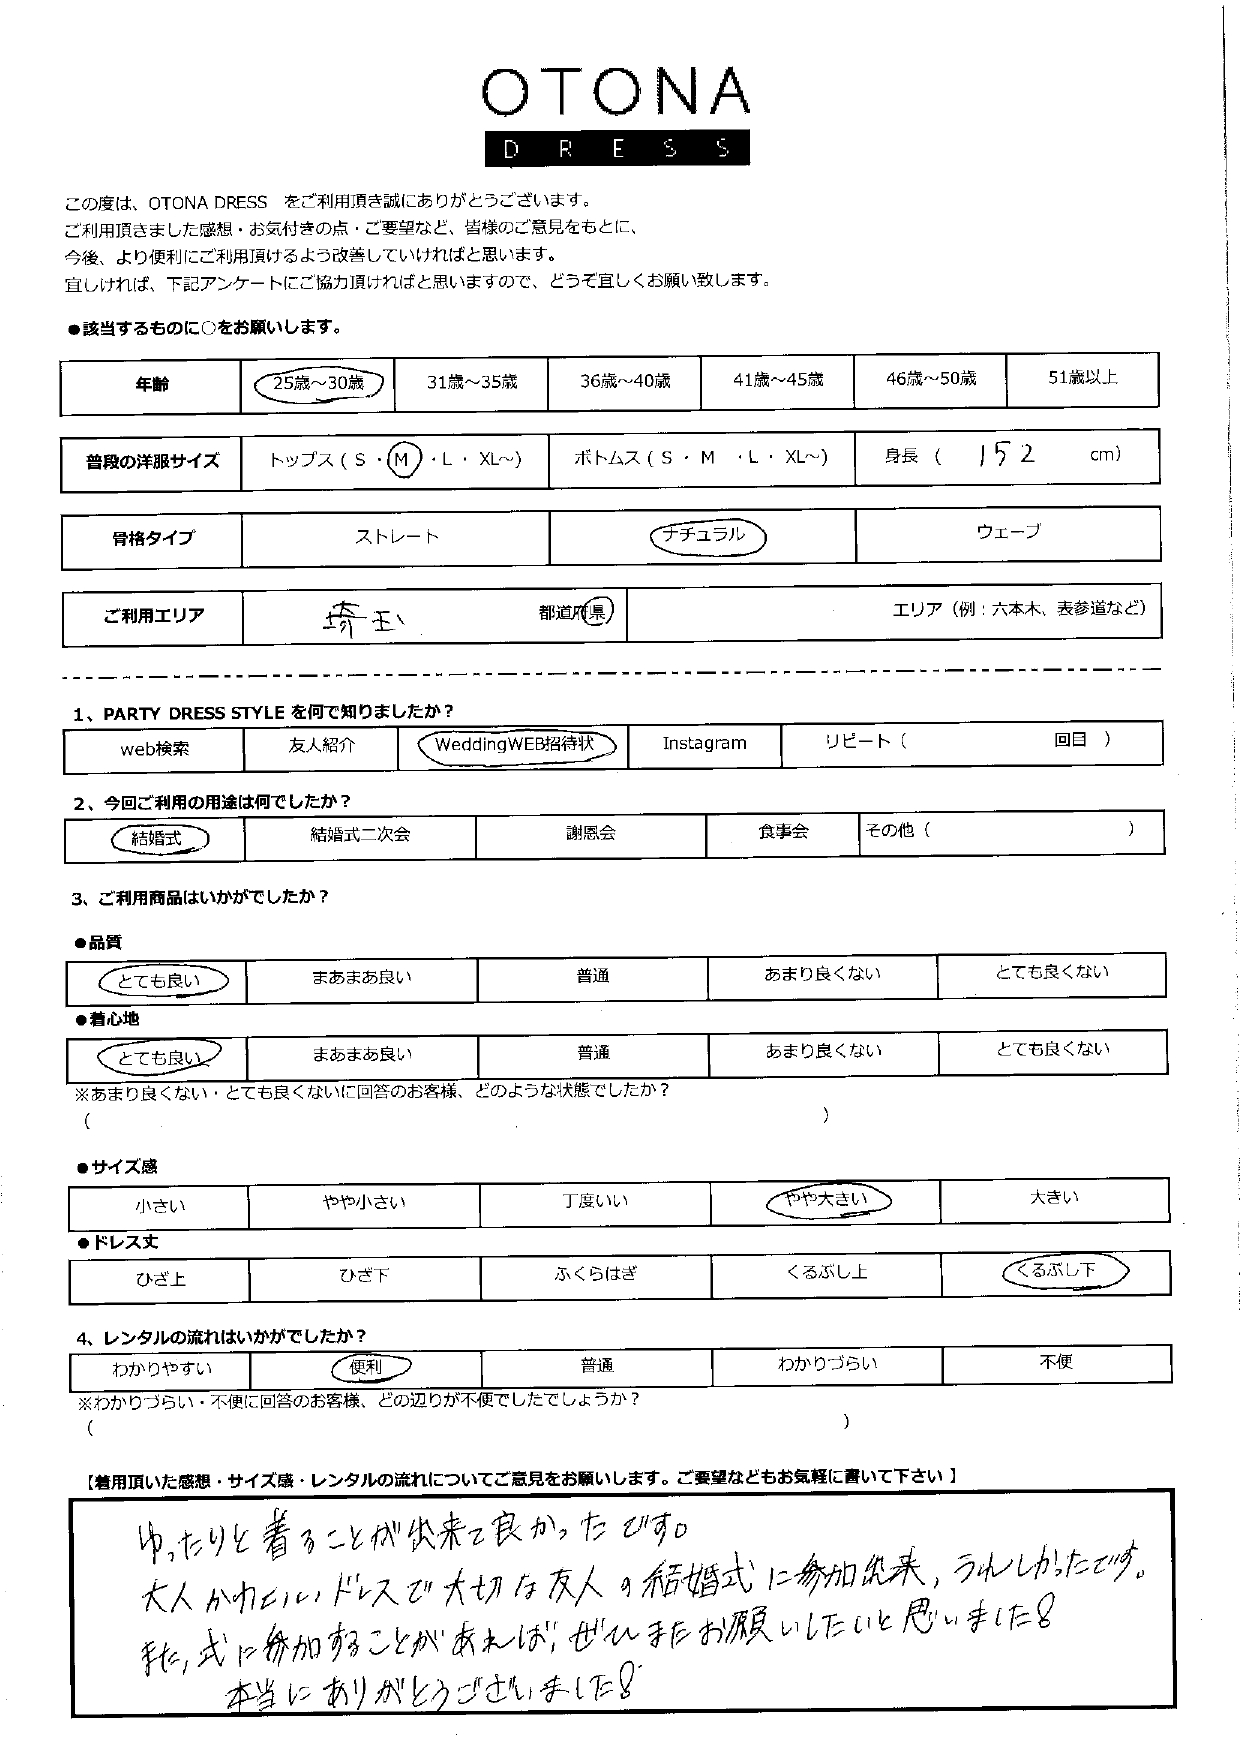 OTONA
DRESS
この度は、OTONA DRESS をご利用頂き誠にありがとうございます。
ご利用頂きました感想・お気付きの点・ご要望など、皆様のご意見をもとに、
今後、より便利にご利用頂けるよう改善していければと思います。
宜しければ、下記アンケートにご協力頂ければと思いますので、どうぞ宜しくお願い致します。
●該当するものに○をお願いします。
年齢 25歳～30歳 31歳～35歳 36歳～40歳 41歳～45歳 46歳～50歳 51歳以上
普段の洋服サイズ トップス ( S ・ M ・ L ・ XL～) ボトムス ( S ・ M ・ L ・ XL～) 身長 ( 152 cm)
骨格タイプ ストレート ナチュラル ウェーブ
ご利用エリア 埼玉 都道府県 エリア（例：六本木、表参道など）
1、PARTY DRESS STYLE を何で知りましたか？
web検索 友人紹介 WeddingWEB招待状 Instagram リピート（ 回目 ）
2、今回ご利用の用途は何でしたか？
結婚式 結婚式二次会 謝恩会 食事会 その他（ ）
3、ご利用商品はいかがでしたか？
●品質
とても良い まあまあ良い 普通 あまり良くない とても良くない
●着心地
とても良い まあまあ良い 普通 あまり良くない とても良くない
※あまり良くない・とても良くないに回答のお客様、どのような状態でしたか？
( )
●サイズ感
小さい やや小さい 丁度いい やや大きい 大きい
●ドレス丈
ひざ上 ひざ下 ふくらはぎ くるぶし上 くるぶし下
4、レンタルの流れはいかがでしたか？
わかりやすい 便利 普通 わかりづらい 不便
※わかりづらい・不便に回答のお客様、どの辺りが不便でしたでしょうか？
( )
【着用頂いた感想・サイズ感・レンタルの流れについてご意見をお願いします。ご要望などもお気軽に書いて下さい】
ゆったりと着ることが出来て良かったです。
大人かわいいドレスで大切な友人の結婚式に参加出来、うれしかったです。
また、式に参加することがあれば、ぜひまたお願いしたいと思いました！
本当にありがとうございました！